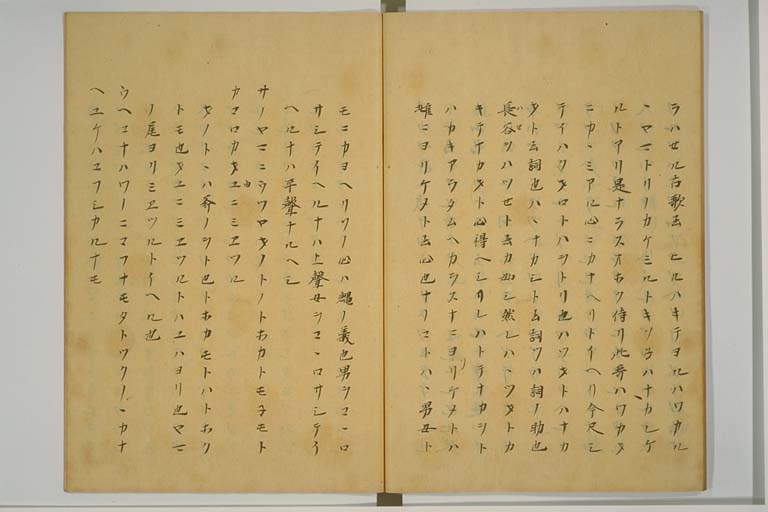 ラハせル古歌云 ヒルハキテヨルハワカル
ヽヤマトリノカケミルトキソ子ハナカレケ
ルトアリ是ナラスオホク侍リ此哥ハワカタ
ニカヽミアル心ニカナヘリトイヘリ今尺シ
テイハクタロトハシトリ也ハツヲトハナカ
タト云詞也ハヽナカシト云詞ツハ詞ノ助也
長谷ヲハツせト云カ如シ然レハハツヲトカ
キテナカヲト心得ヘシ
ハカキアラタムヘカラスナニヨリケメトハ
雄ニヨリケメト云心也ナリコトハヽ男女ト
モニカヨヘリツノ心ハ縄ノ義也男ヲコヽロ
サシテイヘルナハ上聲女ヲコヽロサシテイ
ヘルナハ平聲ナルヘシ
サノヤマニヲツヤキノトノトホカトモ子モト
カコロカオユニミエツル
ヲノトヽハ斧ノヲト也トホカモトハトホク
トモ也オユニミエツルトハユハヨリ也ヤマ
ノ尾ヨリミエツルトイヘル也
ウヘコナハワヌニコフナモタトツクノヌカナ
ヘユケハコフシカルナモ